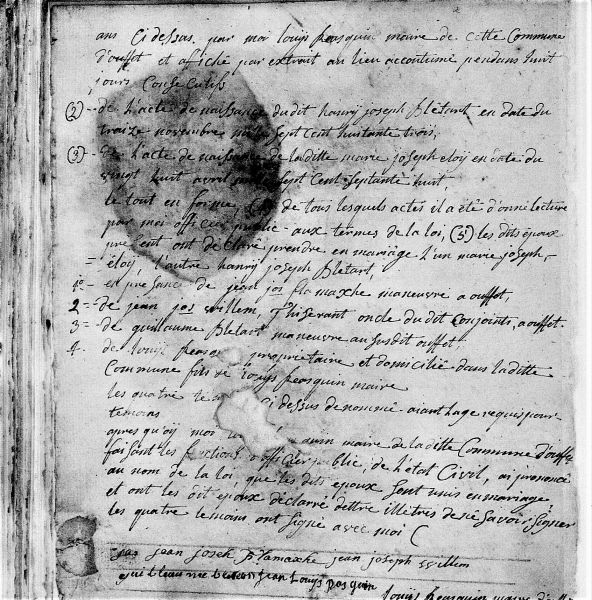 ans Ci dessas par moi louis peasquin maire de cette Commune
d'ouffet et afiché par extrait au lieu accoutumé pendans huit
jours Conse Cutifs
(2) - de l'acte de naissance dudit hanry joseph Bletart en date du
traize novembre mil sept Cent huitante trois,
(3) - de l'acte de naissance de laditte marie joseph eloÿ en date du
vingt huit avril sept Cent septante huit,
le tout en forme, de tous lesquels actes il a été d'onné lecture
par moi officier public aux termes de la loi, (5) les dits époux
present ont déclaré prendre en mariage l'un marie joseph,
= éloÿ, l'autre hanrij joseph Bletart.
1º - en presance de jean jos plamaxhe maneuvre a ouffet,
2 = de jean jos willem, onde du dot Conjoints, a ouffet.
3 = de guilaume Bletart maneuvre au susdit ouffet.
4. de louis propriétaire et domicilié dans laditte
Commune fils de louis peasquin maire
les quatre Ci dessus denommé aiant l'age requis pour
temoins
apres qu'oÿ moi maire de laditte Commune d'ouffet
faisant les fonctions d'officier public, de l'état Civil, ai prononcé
au nom de la loi, que les dits époux sont unis en mariage
et ont les dit époux déclarré d'ettre illétres de ne savoir signer
les quatre temoins ont signé avec moi (
jean josep plamaxhe jean joseph Willem
guilleaume Bletart jean Louijs pasquin
louijs peasquin maire